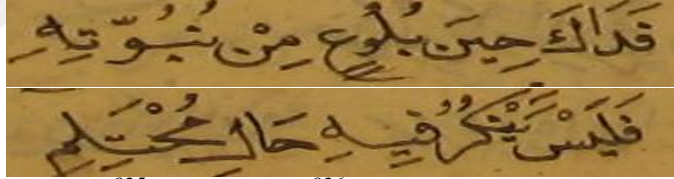 فَدَاكَ حِينَ بُلُوعٍ مِنْ نُبُوَّتِهِ
فَلَيَسْ يُنْكَرُ فِيهِ حَالَ مُحْتَلِمِ